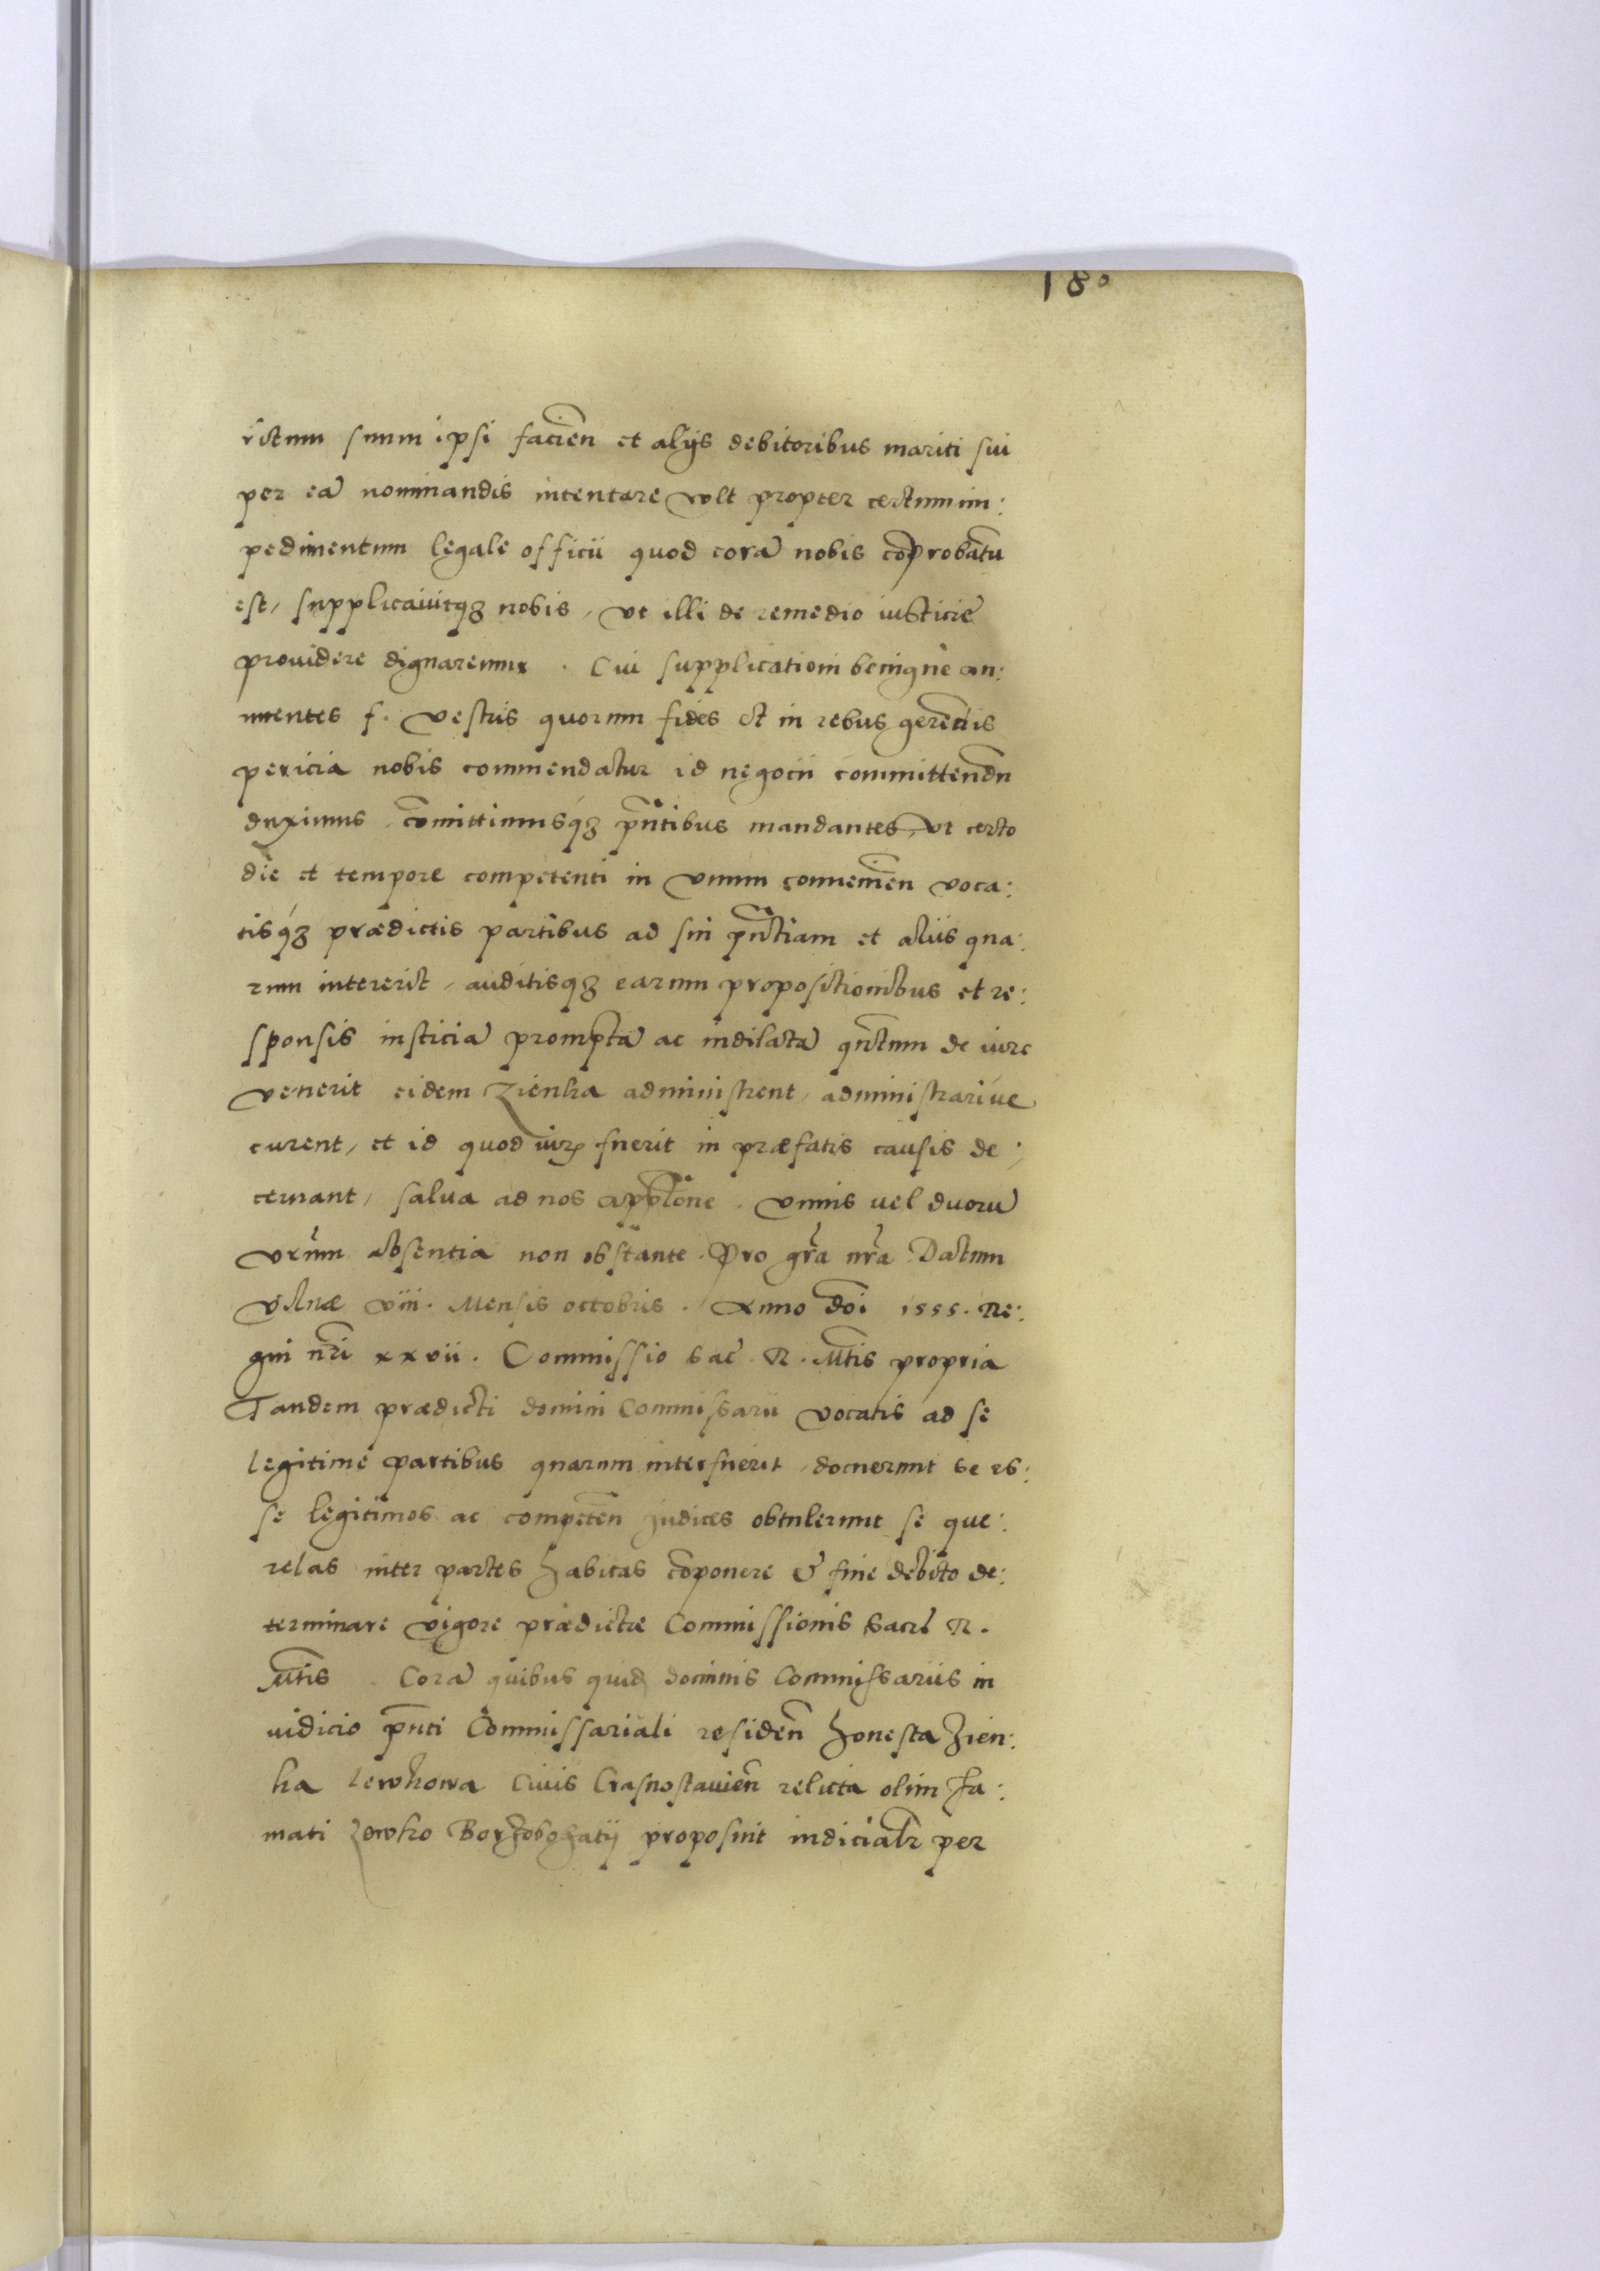 180
ritum suum ipsi facien̄ et alijs debitoribus mariti sui
per eā nominandis intentare vult propter certum im:
pedimentum legale officii quod corā nobis cōprobatū
est, supplicavitq₃ nobis, vt illi de remedio iusticie
providere dignaremur. Cui supplicationi benigne an:
nuentes f. vestris quorum fides et in rebus gerendis
pericia nobis commendatur id negocii committendū
duximus, cōmittimusq₃ pn̄tibus mandantes, vt certo
die et tempore competenti in vnum convenien̄ voca:
tisq₃ prædictis partibus ad sui pn̄tiam et aliis qua:
rum intererit, auditisq₃ earum propositionibus et re:
sponsis iusticiā promptā ac indilatā qn̄tum de iure
venerit eidem Zienka administrent, administrarive
curent, et id quod iuris fuerit in præfatis causis de:
cernant, salva ad nos appl̄one. Vnius vel duorū
vr̄um absentia non obstante. Pro gr̄a nr̄a Datum
Vilnæ viii. Mensis octobris. Anno dn̄i 1555. Re:
gni nr̄i xxvii. Commissio Sac. R. Mt̄is propria
Tandem prædicti domini Commissarii vocatis ad se
legitime partibus quarum interfuerit, docuerunt se es:
se legitimos ac competen̄ judices obtulerunt se que:
relas inter partes habitas cōponere & fine debito de:
terminare vigore prædictæ Commissionis Sacræ R.
Mt̄is. Corā quibus quid dominis Commissariis in
iudicio pn̄ti Commissariali residen̄ honesta Zien:
ka lewkowa Civis Crasnostavien̄ relicta olim fa:
mati lewko Borzobohatij proposuit iudicialr̄ per